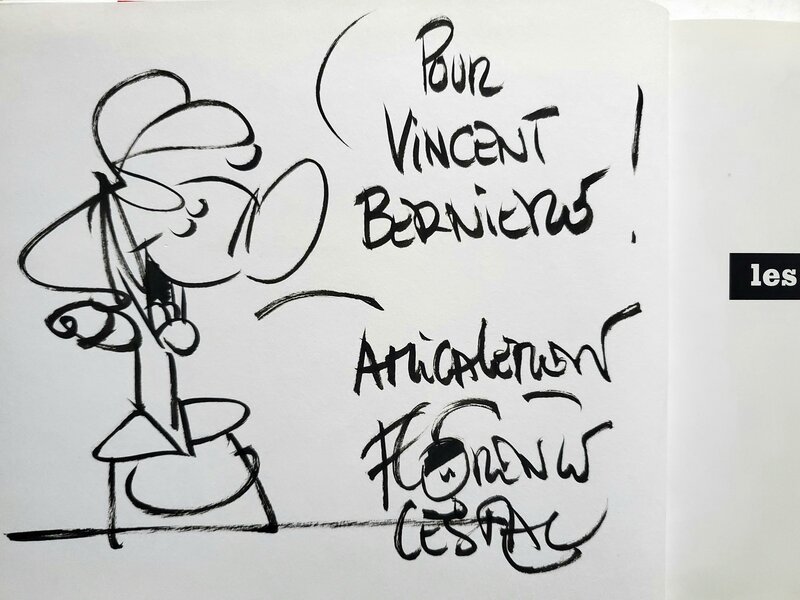 POUR
VINCENT
BERNIERE !
AMICALEMENT
FLORENCE
CESTAC
les